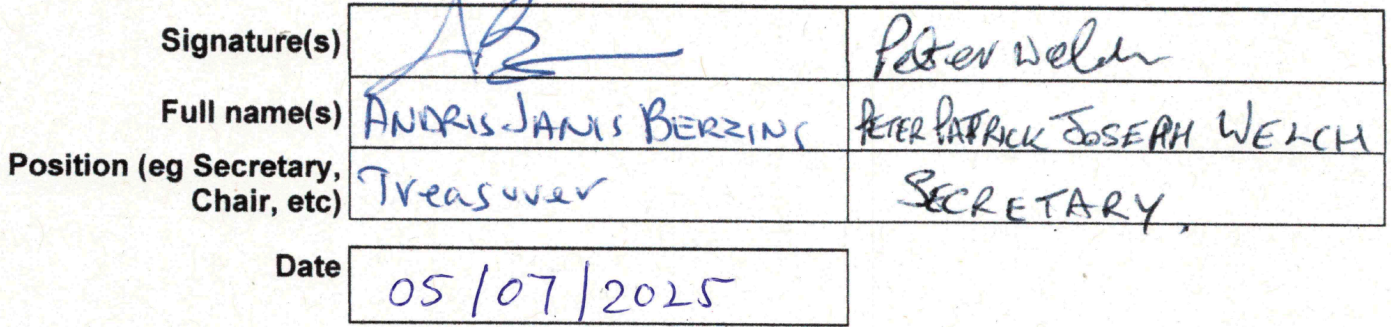 Signature(s) Peter Welch
Full name(s) ANDRIS JANIS BERZINS PETER PATRICK JOSEPH WELCH
Position (eg Secretary, Treasurer SECRETARY.
Chair, etc)
Date 05/07/2025